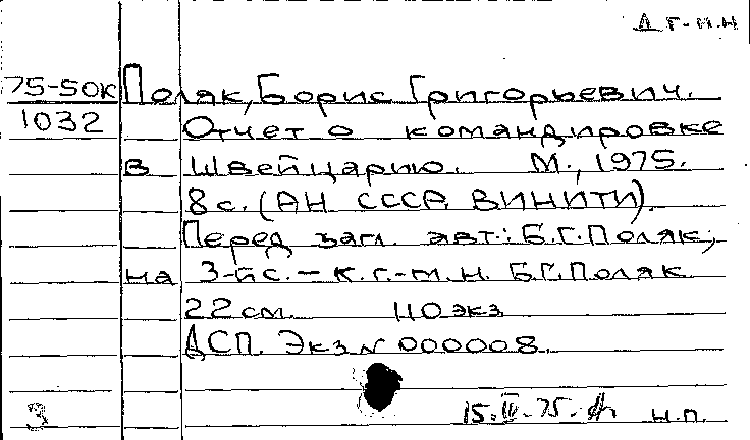 Д г.-м.н
75-50К Поляк, Борис Григорьевич.
1032 Отчет о командировке
в Швейцарию. М., 1975.
8 с. (АН СССР. ВИНИТИ).
Перед загл. авт.: Б.Г. Поляк;
на 3-й с. – к.г.-м.н. Б.Г. Поляк
22 см. 110 экз
ДСП. Экз N 000008.
3 15.IV.75. н.п.